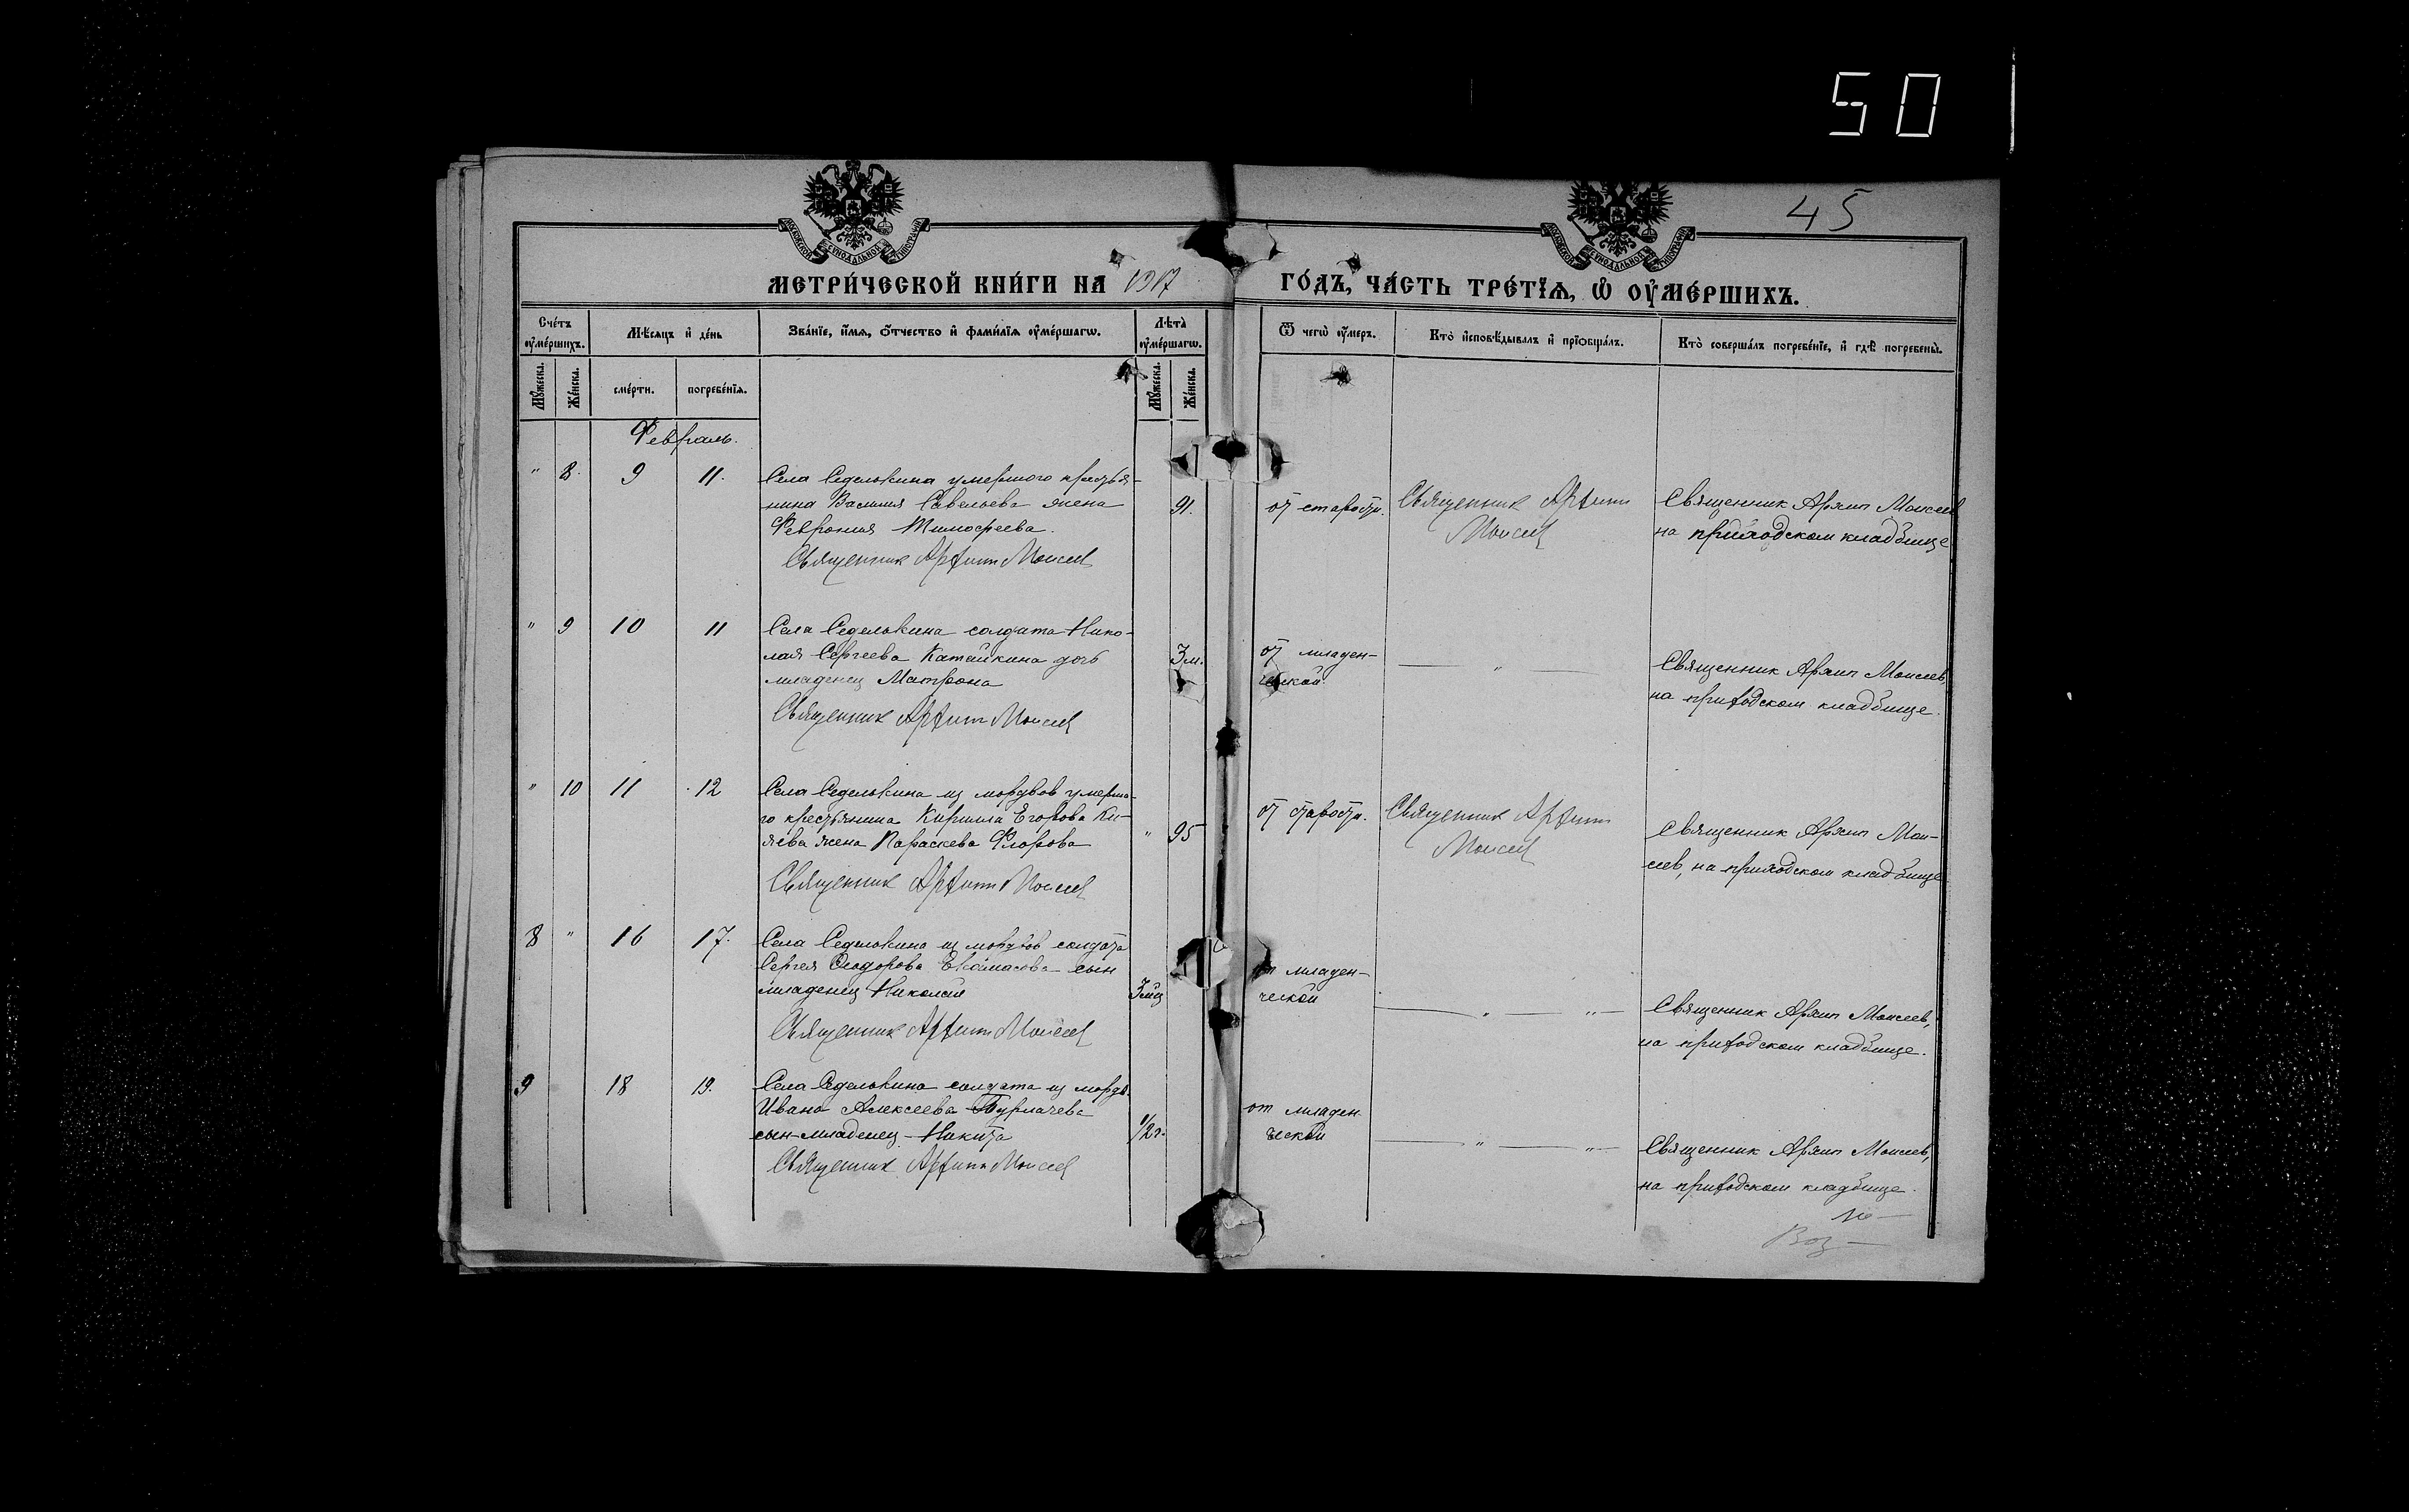 50
45
МОСКОВСКОЙ СѴНОДАЛЬНОЙ ТИПОГРАФІИ
МОСКОВСКОЙ СѴНОДАЛЬНОЙ ТИПОГРАФІИ
МЕТРИ́ЧЕСКОЙ КНИ́ГИ НА 1917 ГО́ДЪ, ЧА́СТЬ ТРЕ́ТЇѦ, Ѽ ОУ҆МЕ́РШИХЪ.
Сче́тъ оу҆ме́ршихъ.
Мѣ́сяцъ и҆ де́нь
Зва́нїе, и҆́мѧ, ѻ҆́тчество и҆ фами́лїѧ оу҆ме́ршагѡ.
Лѣ́та оу҆ме́ршагѡ.
Ѿ чегѡ̀ оу҆́меръ.
Кто̀ и҆сповѣ́дывалъ и҆ прїѡбща́лъ.
Кто̀ соверша́лъ погребе́нїе, и҆ гдѣ̀ погребены̀.
Мꙋ́жеска.
Же́нска.
сме́рти.
погребе́нїѧ.
Мꙋ́жеска.
Же́нска.
Февраль.
" 8. 9 11.
Села Седелькина умершого крестья-
нина Василия Савельева жена
Феврония Тимофеева.
Священник Архип Моисеев
91.
от старости.
Священник Архип
Моисеев
Священник Архип Моисеев
на приходском кладбище
" 9 10 11
Села Седелькина солдата Нико-
лая Сергеева Катайкина дочь
младенец Матрона
Священник Архип Моисеев
3 м.
от младен-
ческой.
"
Священник Архип Моисеев,
на приходском кладбище.
" 10 11 12
Села Седелькина из мордвов умерша-
го крестьянина Кирилла Егорова Ки-
яева жена Параскева Флорова
Священник Архип Моисеев
" 95
от старости.
Священник Архип
Моисеев
Священник Архип Мои-
сеев, на приходском кладбище
8 " 16 17.
Села Седелькина из мордвов солдата
Сергея Феодорова сын
младенец Николай
Священник Архип Моисеев
3 мц
от младен-
ческой
" "
Священник Архип Моисеев,
на приходском кладбище.
9 18 19.
Села Седелькина солдата из мордв.
Ивана Алексеева
сын младенец Никита
Священник Архип Моисеев
1/2 г.
от младен-
ческой
" "
Священник Архип Моисеев,
на приходском кладбище.